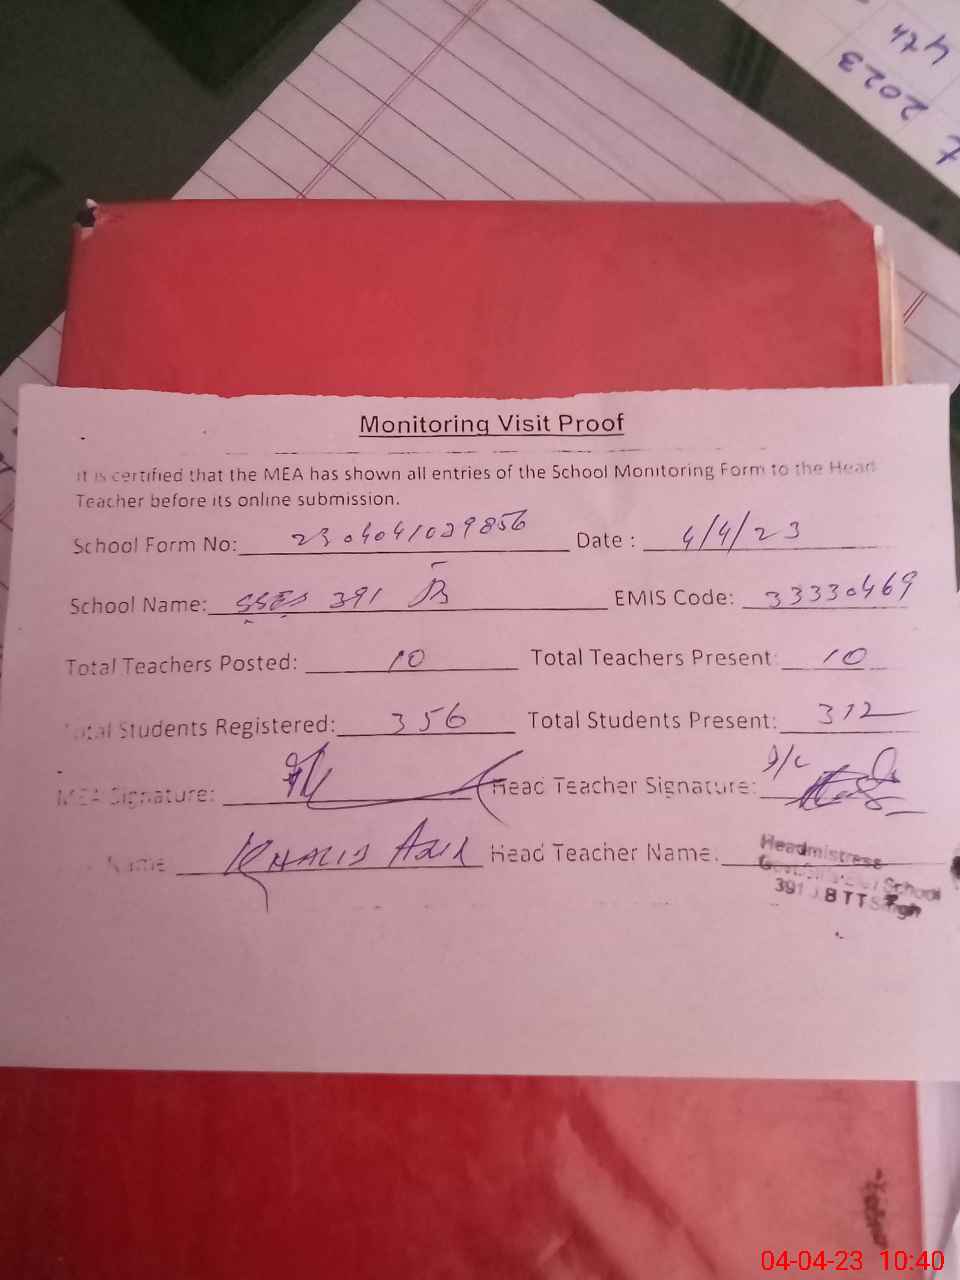 4th
2023
Monitoring Visit Proof
It is certified that the MEA has shown all entries of the School Monitoring Form to the Head
Teacher before its online submission.
School Form No: 2304041029856 Date : 4/4/23
School Name: 391 JB EMIS Code: 33330469
Total Teachers Posted: 10 Total Teachers Present: 10
Total Students Registered: 356 Total Students Present: 312
MEA Signature: Head Teacher Signature: I/c
Name KHALID Head Teacher Name:
Headmistress
School
391 J.B TTSingh
04-04-23 10:40